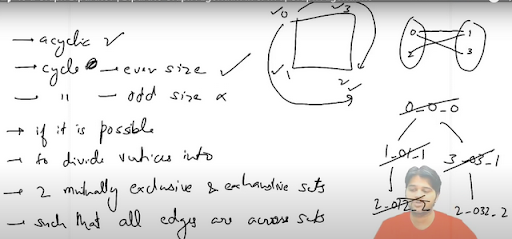 → acyclic ✓
→ cycle — even size ✓
— " — odd size ×
→ if it is possible
→ to divide vertices into
→ 2 mutually exclusive & exhaustive sets
— such that all edges are across sets
0 3
1 2
0 1
2 3
0_0_0
1_01_1 3_03_1
2_012_2 2_032_2